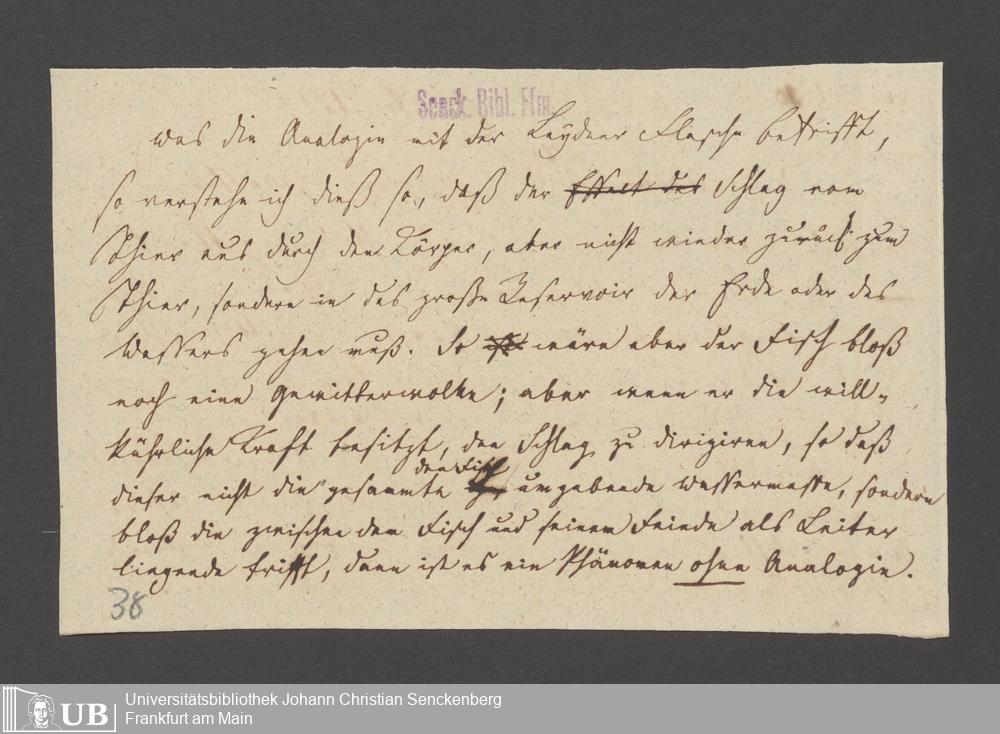 Senck. Bibl. Ffm.
was die Analogie mit der Leydner Flasche betrifft,
so verstehe ich dieß so, daß der Effect des Schlag vom
Thier aus durch den Körper, aber nicht wieder zurück zum
Thier, sondern in das große Reservoir der Erde oder des
Wassers gehen muß. So ist wäre aber der Fisch bloß
noch eine Gewitterwolke; aber wenn er die will-
kührliche Kraft besitzt, den Schlag zu dirigiren, so daß
den Fisch
dieser nicht die gesammte umgebende Wassermasse, sondern
bloß die zwischen dem Fisch und seinem Feinde als Leiter
liegende trifft, dann ist es ein Phänomen ohne Analogie.
38
Universitätsbibliothek Johann Christian Senckenberg
UB Frankfurt am Main